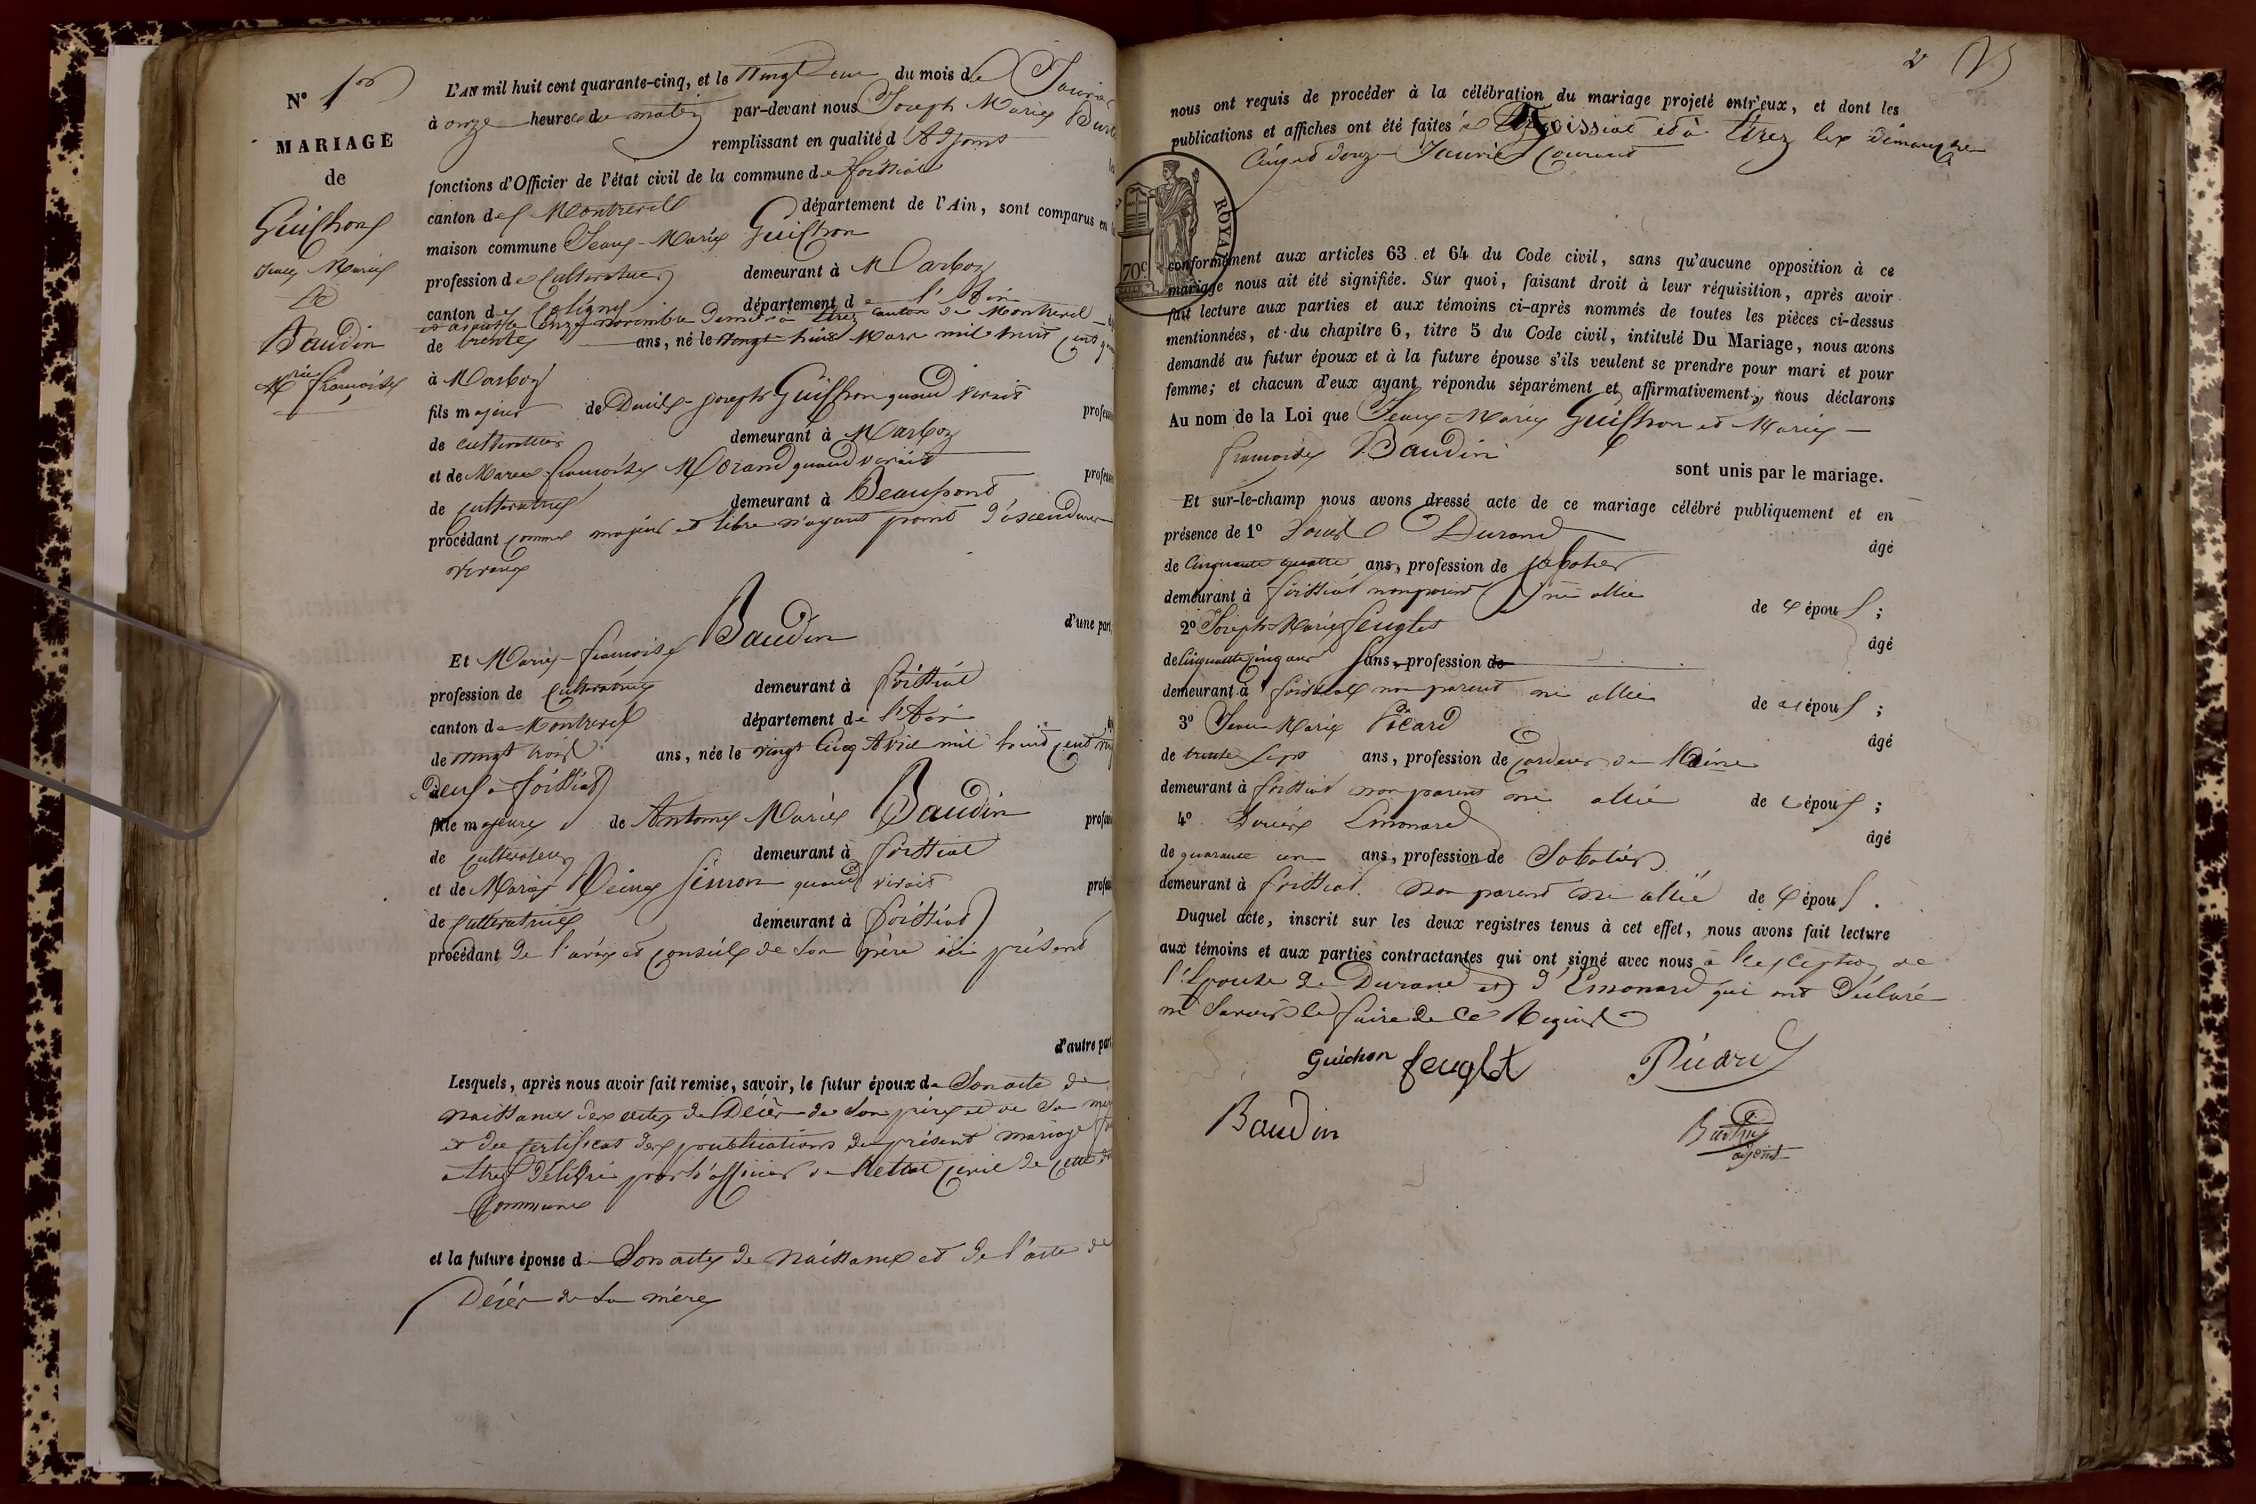 N° 1er
MARIAGE
de
Guichon
Jean Marie
Et
Baudin
Mrie françoise
L'AN mil huit cent quarante-cinq, et le vingt deux du mois de Janvier
à onze heures du matin par-devant nous Joseph Marie
remplissant en qualité d'Adjoint
fonctions d'Officier de l'état civil de la commune de foissiat
canton de Montrevel département de l'Ain, sont comparus en
maison commune Jean-Marie Guichon
profession de Cultivateur demeurant à Marboz
canton de Coligny département de l'Ain
et avant le onze novembre dernier à Etrez canton de Montrevel
de trente ans, né le vingt huit Mars mil huit cent
à Marboz
fils majeur de Denis-joseph Guichon quand vivait
de cultivateur demeurant à Marboz
et de Marie françoise Morand quand vivait
de cultivatrice demeurant à Beaupont
procédant comme majeur et libre n'ayant point d'ascendans
vivans
d'une part,
Et Marie-françoise Baudin
profession de Cultivatrice demeurant à foissiat
canton de Montrevel département de l'Ain
de vingt trois ans, née le vingt cinq Avril mil huit cent
deux à foissiat
fille majeure de Antoine Marie Baudin
de cultivateur demeurant à foissiat
et de Marie Reine Simon quand vivait
de cultivatrice demeurant à foissiat
procédant de l'avis et conseil de son père ici présent
d'autre part
Lesquels, après nous avoir fait remise, savoir, le futur époux de Son acte de
naissance des actes de Décès de son père et de sa mère
et du certificat des publications du présent mariage
à Etrez délivré par l'officier de l'état civil de cette
Commune
et la future épouse de Son acte de naissance et de l'acte de
Décès de sa mère
2
nous ont requis de procéder à la célébration du mariage projeté entr'eux, et dont les
publications et affiches ont été faites à foissiat et à Etrez les dimanches
Cinq et douze Janvier Courant
ROYAL
70c
conformément aux articles 63 et 64 du Code civil, sans qu'aucune opposition à ce
mariage nous ait été signifiée. Sur quoi, faisant droit à leur réquisition, après avoir
fait lecture aux parties et aux témoins ci-après nommés de toutes les pièces ci-dessus
mentionnées, et du chapitre 6, titre 5 du Code civil, intitulé Du Mariage, nous avons
demandé au futur époux et à la future épouse s'ils veulent se prendre pour mari et pour
femme; et chacun d'eux ayant répondu séparément et affirmativement, nous déclarons
Au nom de la Loi que Jean-Marie Guichon et Marie-
françoise Baudin
sont unis par le mariage.
Et sur-le-champ nous avons dressé acte de ce mariage célébré publiquement et en
présence de 1° Louis Durand
âgé
de Cinquante quatre ans, profession de sabotier
demeurant à foissiat non parent ni allié de l'époux;
2° Joseph-Marie feuglet
âgé
de Cinquante cinq ans sans profession
demeurant à foissiat non parent ni allié de l'époux;
3° Jean Marie Picard
âgé
de trente sept ans, profession de
demeurant à foissiat non parent ni allié de l'époux;
4° Limonard
âgé
de quarante un ans, profession de Sabotier
demeurant à foissiat non parent ni allié de l'époux.
Duquel acte, inscrit sur les deux registres tenus à cet effet, nous avons fait lecture
aux témoins et aux parties contractantes qui ont signé avec nous à l'exception de
l'Epouse de Durand et de Limonard qui ont déclaré
ne savoir le faire de ce Requis
Guichon feuglet Picard
Baudin
adjoint